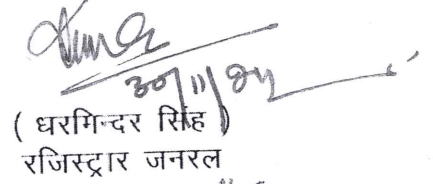 30/11/
( धरगिन्दर सिंह )
रजिस्ट्रार जनरल